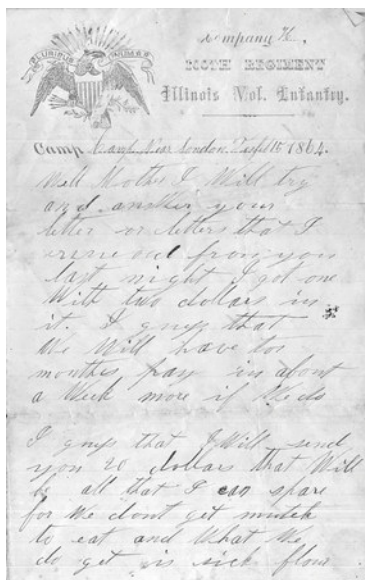 E PLURIBUS UNUM
Company K,
100TH REGIMENT
Illinois Vol. Infantry.
Camp Camp Near London. 1864.
Well Mother I Will try
and answer your
letter or letters that I
from you
last night I got one
With two dollars in
it. I guys that
We Will have too
monthes pay in about
a Week more if We do
I guys that I Will send
you 20 dollars that Will
be all that I can spare
for We dont get mutch
to eat and What We
do get is sick flour